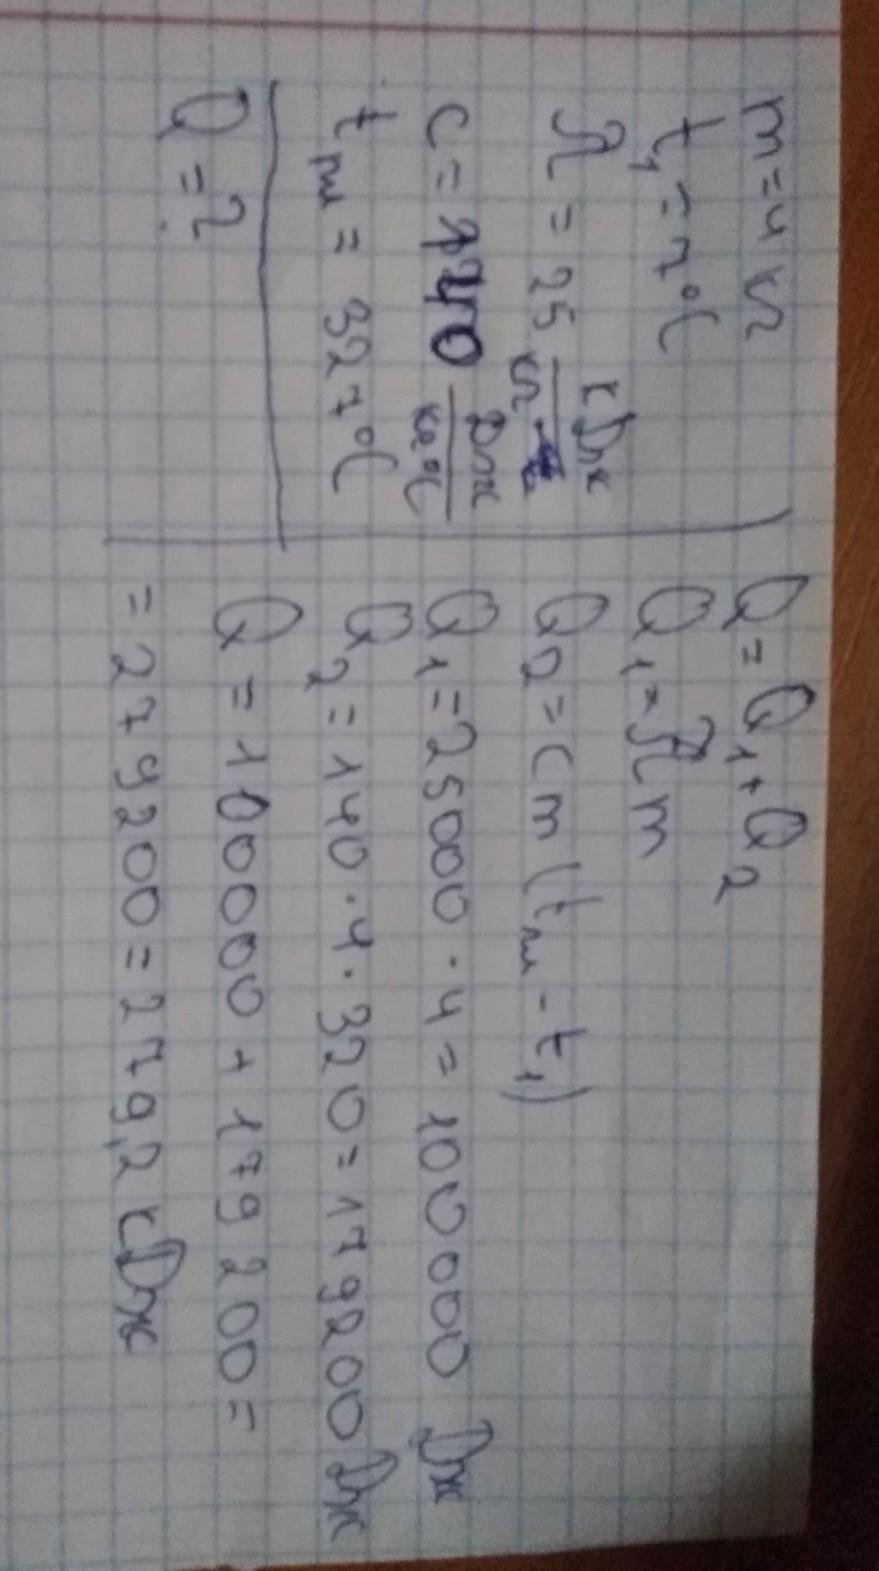 m=4 кг
t₁=7°C
λ=25 кДж/кг
c=140 Дж/кг°C
tпл=327°C
Q=?
Q=Q₁+Q₂
Q₁=λm
Q₂=cm(tпл-t₁)
Q₁=25000·4=100000 Дж
Q₂=140·4·320=179200 Дж
Q=100000+179200=
=279200=279,2 кДж